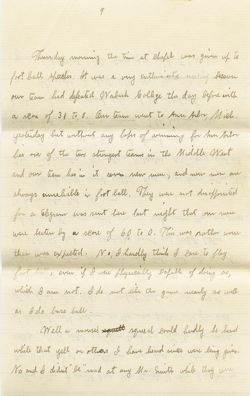 9
Thursday morning the time at chapel was given up to
foot ball speeches. It was a very enthusiastic meeting because
our team had defeated Wabash College the day before with
a score of 38 to 0. Our team went to Ann Arbor, Mich.
yesterday but without any hopes of winning for Ann Arbor
has one of the two strongest teams in the Middle West
and our team has in it seven new men, and new men are
always unreliable in foot ball. They were not disappointed
for a telegram was sent here last night that our men
were beaten by a score of 60 to 0. This was rather worse
than was expected. No, I hardly think I care to play
foot ball, even if I was physically capable of doing so,
which I am not. I do not like the game nearly as well
as I do base ball.
Well a mouse's squeal would hardly be heard
while that yell or others I have heard since were being given.
No and I didn't be mad at any Mr. Smith while they were